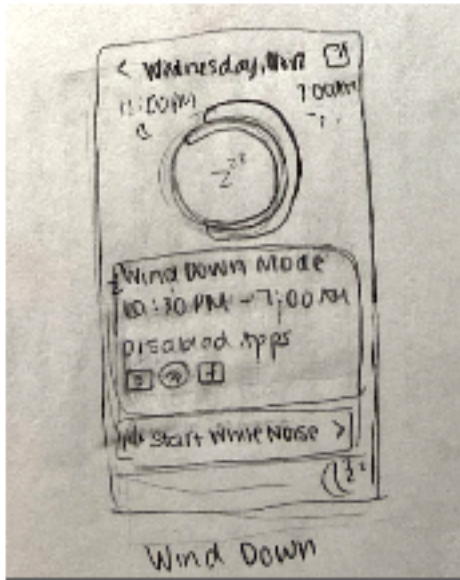 < Wednesday,
11:00PM 7:00AM
zzz
Wind Down Mode
10:30 PM - 7:00 AM
Disabled Apps
Start White Noise >
Wind Down